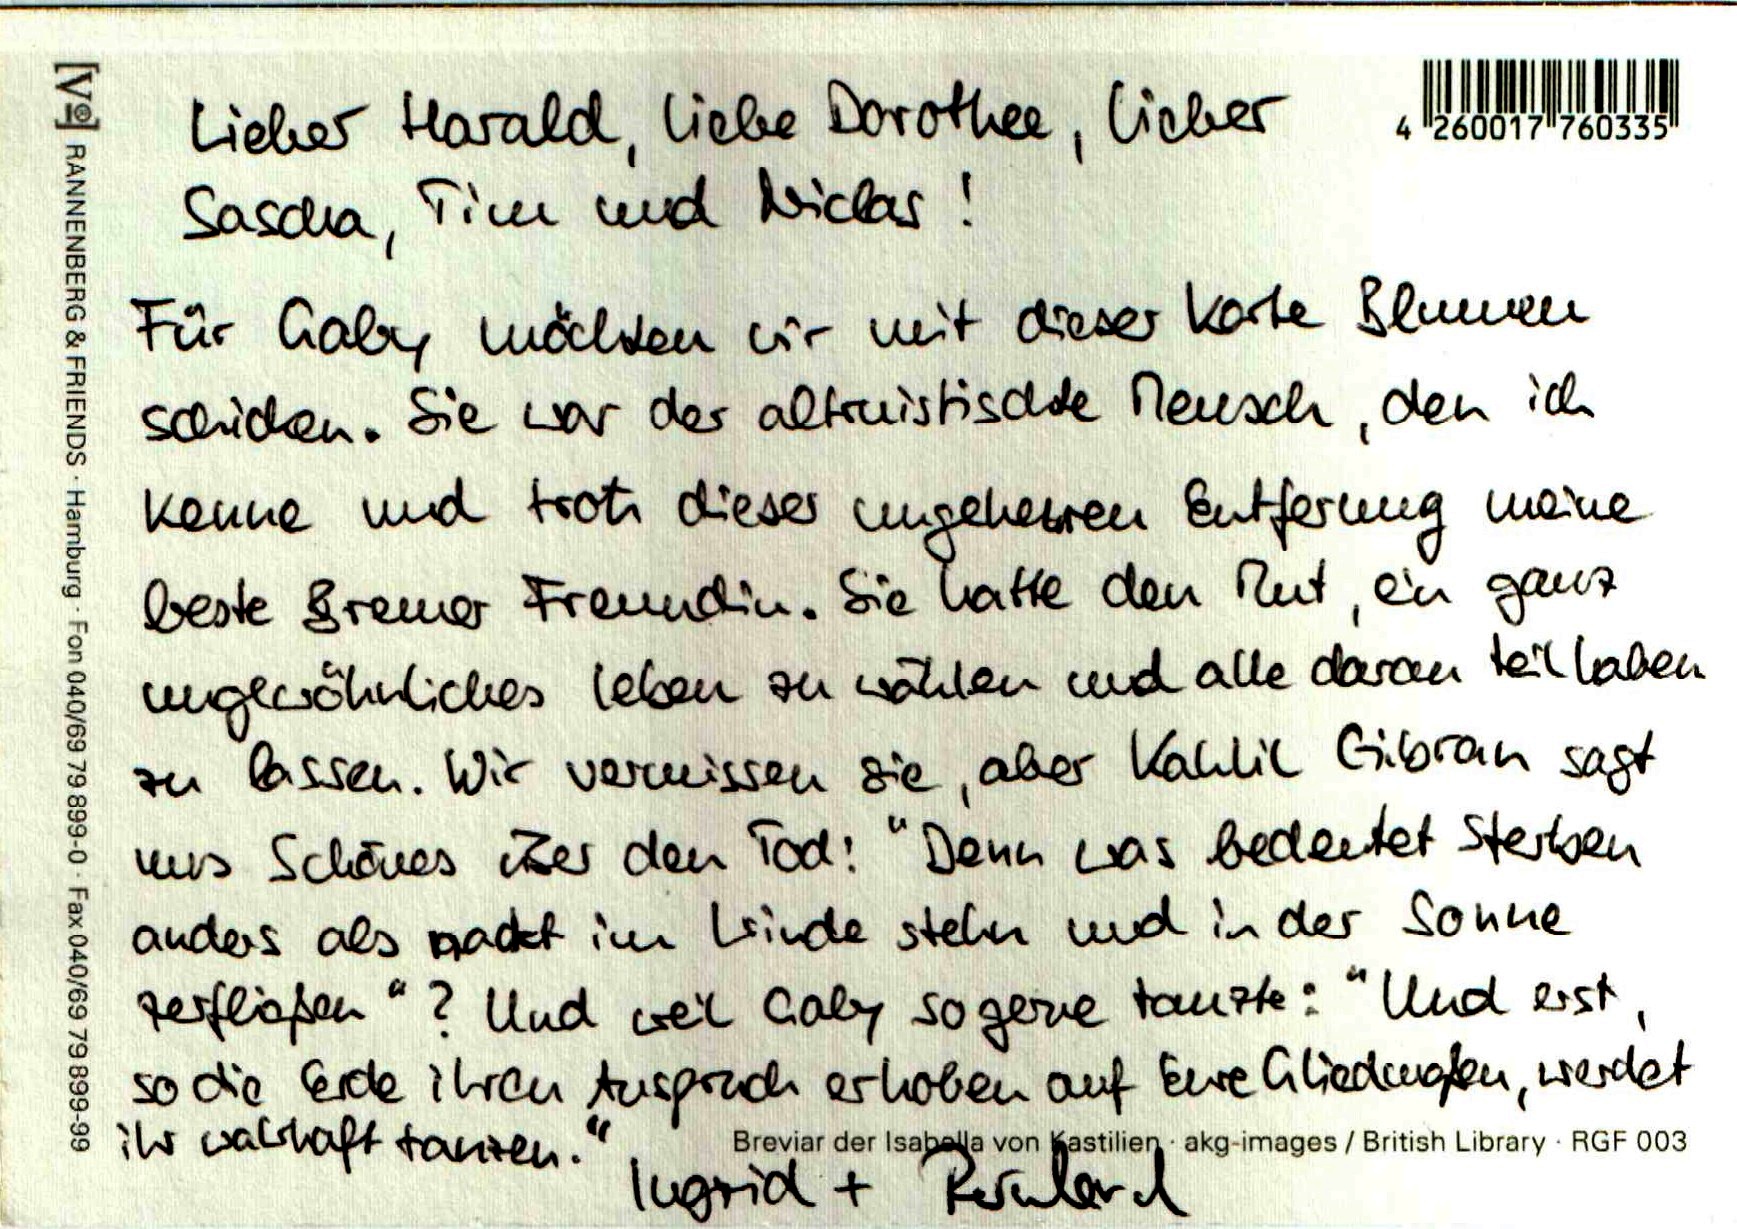 Lieber Harald, liebe Dorothee, lieber
Sascha, Tim und Niclas!
Für Gaby möchten wir mit dieser Karte Blumen
schicken. Sie war der altruistischste Mensch, den ich
kenne und trotz dieser ungeheuren Entfernung meine
beste Bremer Freundin. Sie hatte den Mut, ein ganz
ungewöhnliches Leben zu wählen und alle daran teilhaben
zu lassen. Wir vermissen sie, aber Kahlil Gibran sagt
uns Schönes über den Tod: "Denn was bedeutet Sterben
anders als nackt im Winde stehn und in der Sonne
zerfließen"? Und weil Gaby so gerne tanzte: "Und erst,
so die Erde ihren Anspruch erhoben auf Eure Gliedmaßen, werdet
ihr wahrhaft tanzen."
Ingrid + Reinhard
4 260017 760335
RANNENBERG & FRIENDS · Hamburg · Fon 040/69 79 899-0 · Fax 040/69 79 899-99
Breviar der Isabella von Kastilien · akg-images / British Library · RGF 003